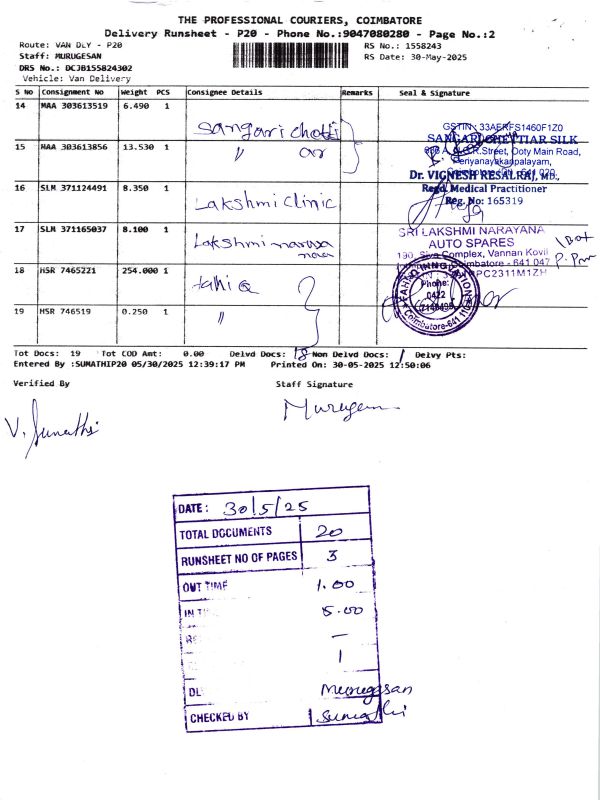 THE PROFESSIONAL COURIERS, COIMBATORE
Delivery Runsheet - P20 - Phone No.:9047080280 - Page No.:2
Route: VAN DLY - P20
RS No.: 1558243
Staff: MURUGESAN
RS Date: 30-May-2025
DRS No.: DCJB155824302
Vehicle: Van Delivery
S No Consignment No Weight PCS Consignee Details Remarks Seal & Signature
14 MAA 303613519 6.490 1 Sangari chetti
GSTIN: 33AERFS1460F1Z0
SANGARI CHETTIAR SILK
15 MAA 303613856 13.530 1 " ar
Street, Ooty Main Road,
Periyanayakanpalayam,
Dr. VIGNESH KESALRAJ,
16 SLM 371124491 8.350 1 Lakshmi Clinic
Regd. Medical Practitioner
Reg. No: 165319
17 SLM 371165037 8.100 1 Lakshmi naraya
SRI LAKSHMI NARAYANA
AUTO SPARES
190, Siva Complex, Vannan Kovil
Coimbatore - 641 047
18 HSR 7465221 254.000 1
Phone:
0422
19 HSR 746519 0.250 1 "
Coimbatore-641
Tot Docs: 19 Tot COD Amt: 0.00 Delvd Docs: 18 Non Delvd Docs: 1 Delvy Pts:
Entered By :SUMATHIP20 05/30/2025 12:39:17 PM Printed On: 30-05-2025 12:50:06
Verified By Staff Signature
V. Sumathi Murugesan
DATE: 30/5/25
TOTAL DOCUMENTS 20
RUNSHEET NO OF PAGES 3
OUT TIME 1.00
IN TI 5.00
—
1
DL Murugesan
CHECKED BY Sumathi